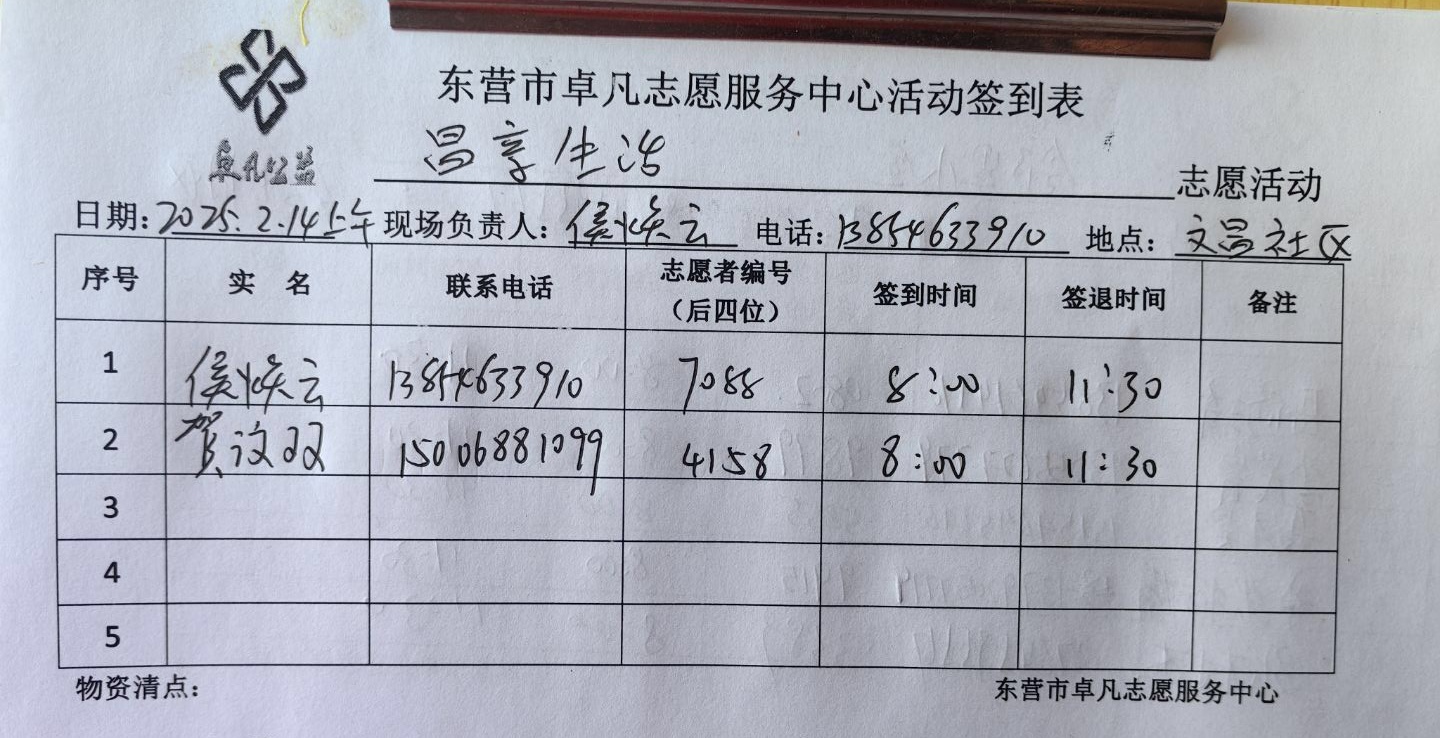 东营市卓凡志愿服务中心活动签到表
卓凡公益
昌享生活 志愿活动
日期：2025.2.14上午 现场负责人：侯焕云 电话：13854633910 地点：文昌社区
序号 实 名 联系电话 志愿者编号（后四位） 签到时间 签退时间 备注
1 侯焕云 13854633910 7088 8:00 11:30
2 贺双 15006881099 4158 8:00 11:30
3
4
5
物资清点： 东营市卓凡志愿服务中心